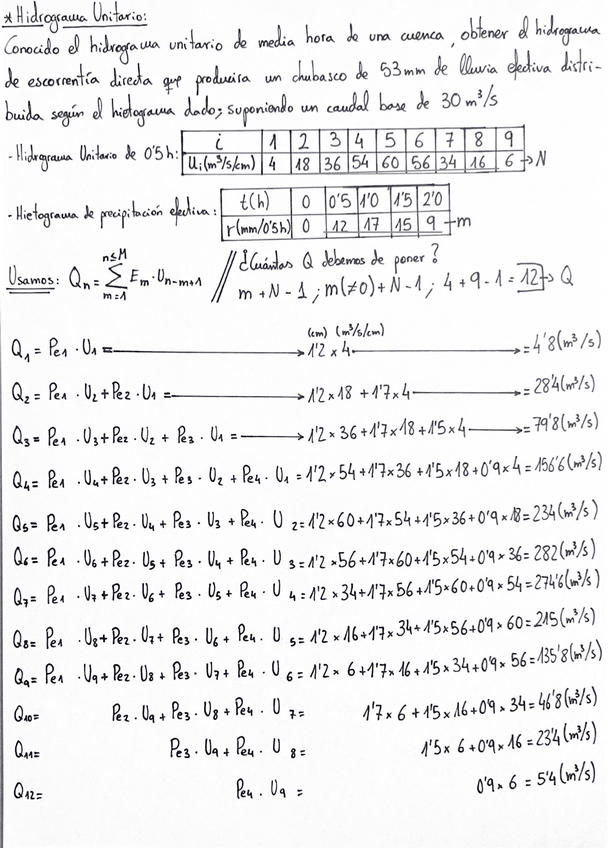 * Hidrograma Unitario:
Conocido el hidrograma unitario de media hora de una cuenca, obtener el hidrograma
de escorrentía directa que produciría un chubasco de 53mm de lluvia efectiva distri-
buida según el hietograma dado; suponiendo un caudal base de 30 m³/s
- Hidrograma Unitario de 0'5 h: i 1 2 3 4 5 6 7 8 9
Ui(m³/s/cm) 4 18 36 54 60 56 34 16 6 → N
- Hietograma de precipitación efectiva: t(h) 0 0'5 1'0 1'5 2'0
r(mm/0'5h) 0 12 17 15 9 → m
Usamos: Qn = Σ n≤M m=1 Em · Un-m+1 // ¿Cuántas Q debemos de poner?
m + N - 1 ; m(≠0) + N - 1 ; 4 + 9 - 1 = 12 → Q
(cm) (m³/s/cm)
Q1 = Pe1 · U1 = → 1'2 x 4 → = 4'8 (m³/s)
Q2 = Pe1 · U2 + Pe2 · U1 = → 1'2 x 18 + 1'7 x 4 → = 28'4 (m³/s)
Q3 = Pe1 · U3 + Pe2 · U2 + Pe3 · U1 = → 1'2 x 36 + 1'7 x 18 + 1'5 x 4 → = 79'8 (m³/s)
Q4 = Pe1 · U4 + Pe2 · U3 + Pe3 · U2 + Pe4 · U1 = 1'2 x 54 + 1'7 x 36 + 1'5 x 18 + 0'9 x 4 = 156'6 (m³/s)
Q5 = Pe1 · U5 + Pe2 · U4 + Pe3 · U3 + Pe4 · U2 = 1'2 x 60 + 1'7 x 54 + 1'5 x 36 + 0'9 x 18 = 234 (m³/s)
Q6 = Pe1 · U6 + Pe2 · U5 + Pe3 · U4 + Pe4 · U3 = 1'2 x 56 + 1'7 x 60 + 1'5 x 54 + 0'9 x 36 = 282 (m³/s)
Q7 = Pe1 · U7 + Pe2 · U6 + Pe3 · U5 + Pe4 · U4 = 1'2 x 34 + 1'7 x 56 + 1'5 x 60 + 0'9 x 54 = 274'6 (m³/s)
Q8 = Pe1 · U8 + Pe2 · U7 + Pe3 · U6 + Pe4 · U5 = 1'2 x 16 + 1'7 x 34 + 1'5 x 56 + 0'9 x 60 = 215 (m³/s)
Q9 = Pe1 · U9 + Pe2 · U8 + Pe3 · U7 + Pe4 · U6 = 1'2 x 6 + 1'7 x 16 + 1'5 x 34 + 0'9 x 56 = 135'8 (m³/s)
Q10 = Pe2 · U9 + Pe3 · U8 + Pe4 · U7 = 1'7 x 6 + 1'5 x 16 + 0'9 x 34 = 46'8 (m³/s)
Q11 = Pe3 · U9 + Pe4 · U8 = 1'5 x 6 + 0'9 x 16 = 23'4 (m³/s)
Q12 = Pe4 · U9 = 0'9 x 6 = 5'4 (m³/s)